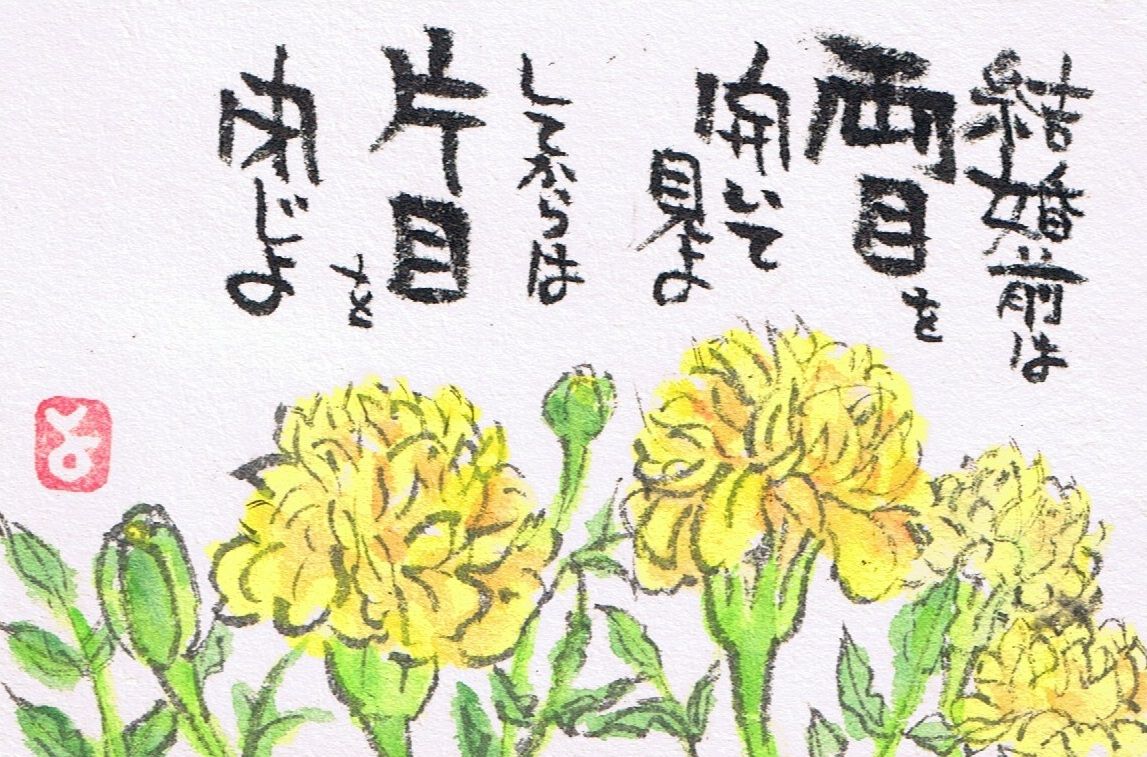 結婚前は
両目を
開いて
見よ
してからは
片目を
閉じよ
よ